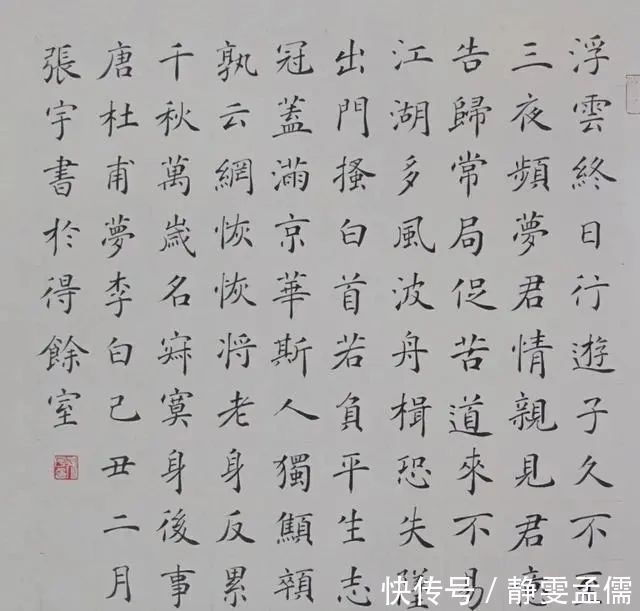 浮雲終日行遊子久不
三夜頻夢君情親見君意
告歸常局促苦道來不易
江湖多風波舟楫恐失墜
出門搔白首若負平生志
冠蓋滿京華斯人獨顦顇
孰云網恢恢将老身反累
千秋萬歲名寂寞身後事
唐杜甫夢李白己丑二月
張宇書於得餘室
快传号 / 静雯孟儒